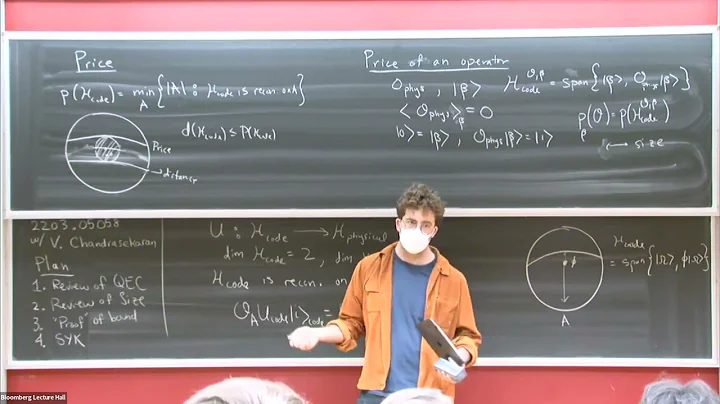 Price
p(H_code) = min_A { |A| : H_code is recon. on A }
d(H_code) ≤ P(H_code)
Price
→ distance
Price of an operator
O_phys , |β⟩ H_code^{O,β} = span{ |β⟩, O_phys|β⟩ }
⟨O_phys⟩_β = 0
p_β(O) = p(H_code^{O,β})
|0⟩ = |β⟩ , O_phys|β⟩ = |1⟩
↔ size
2203.05058
w/ V. Chandrasekaran
Plan
1. Review of QEC
2. Review of Size
3. "Proof" of bound
4. SYK
U : H_code → H_physical
dim H_code = 2 , dim
H_code is recon. on
O_A U_code |i⟩_code =
φ
A
H_code
= span{ |Ω⟩, φ|Ω⟩ }
Bloomberg Lecture Hall